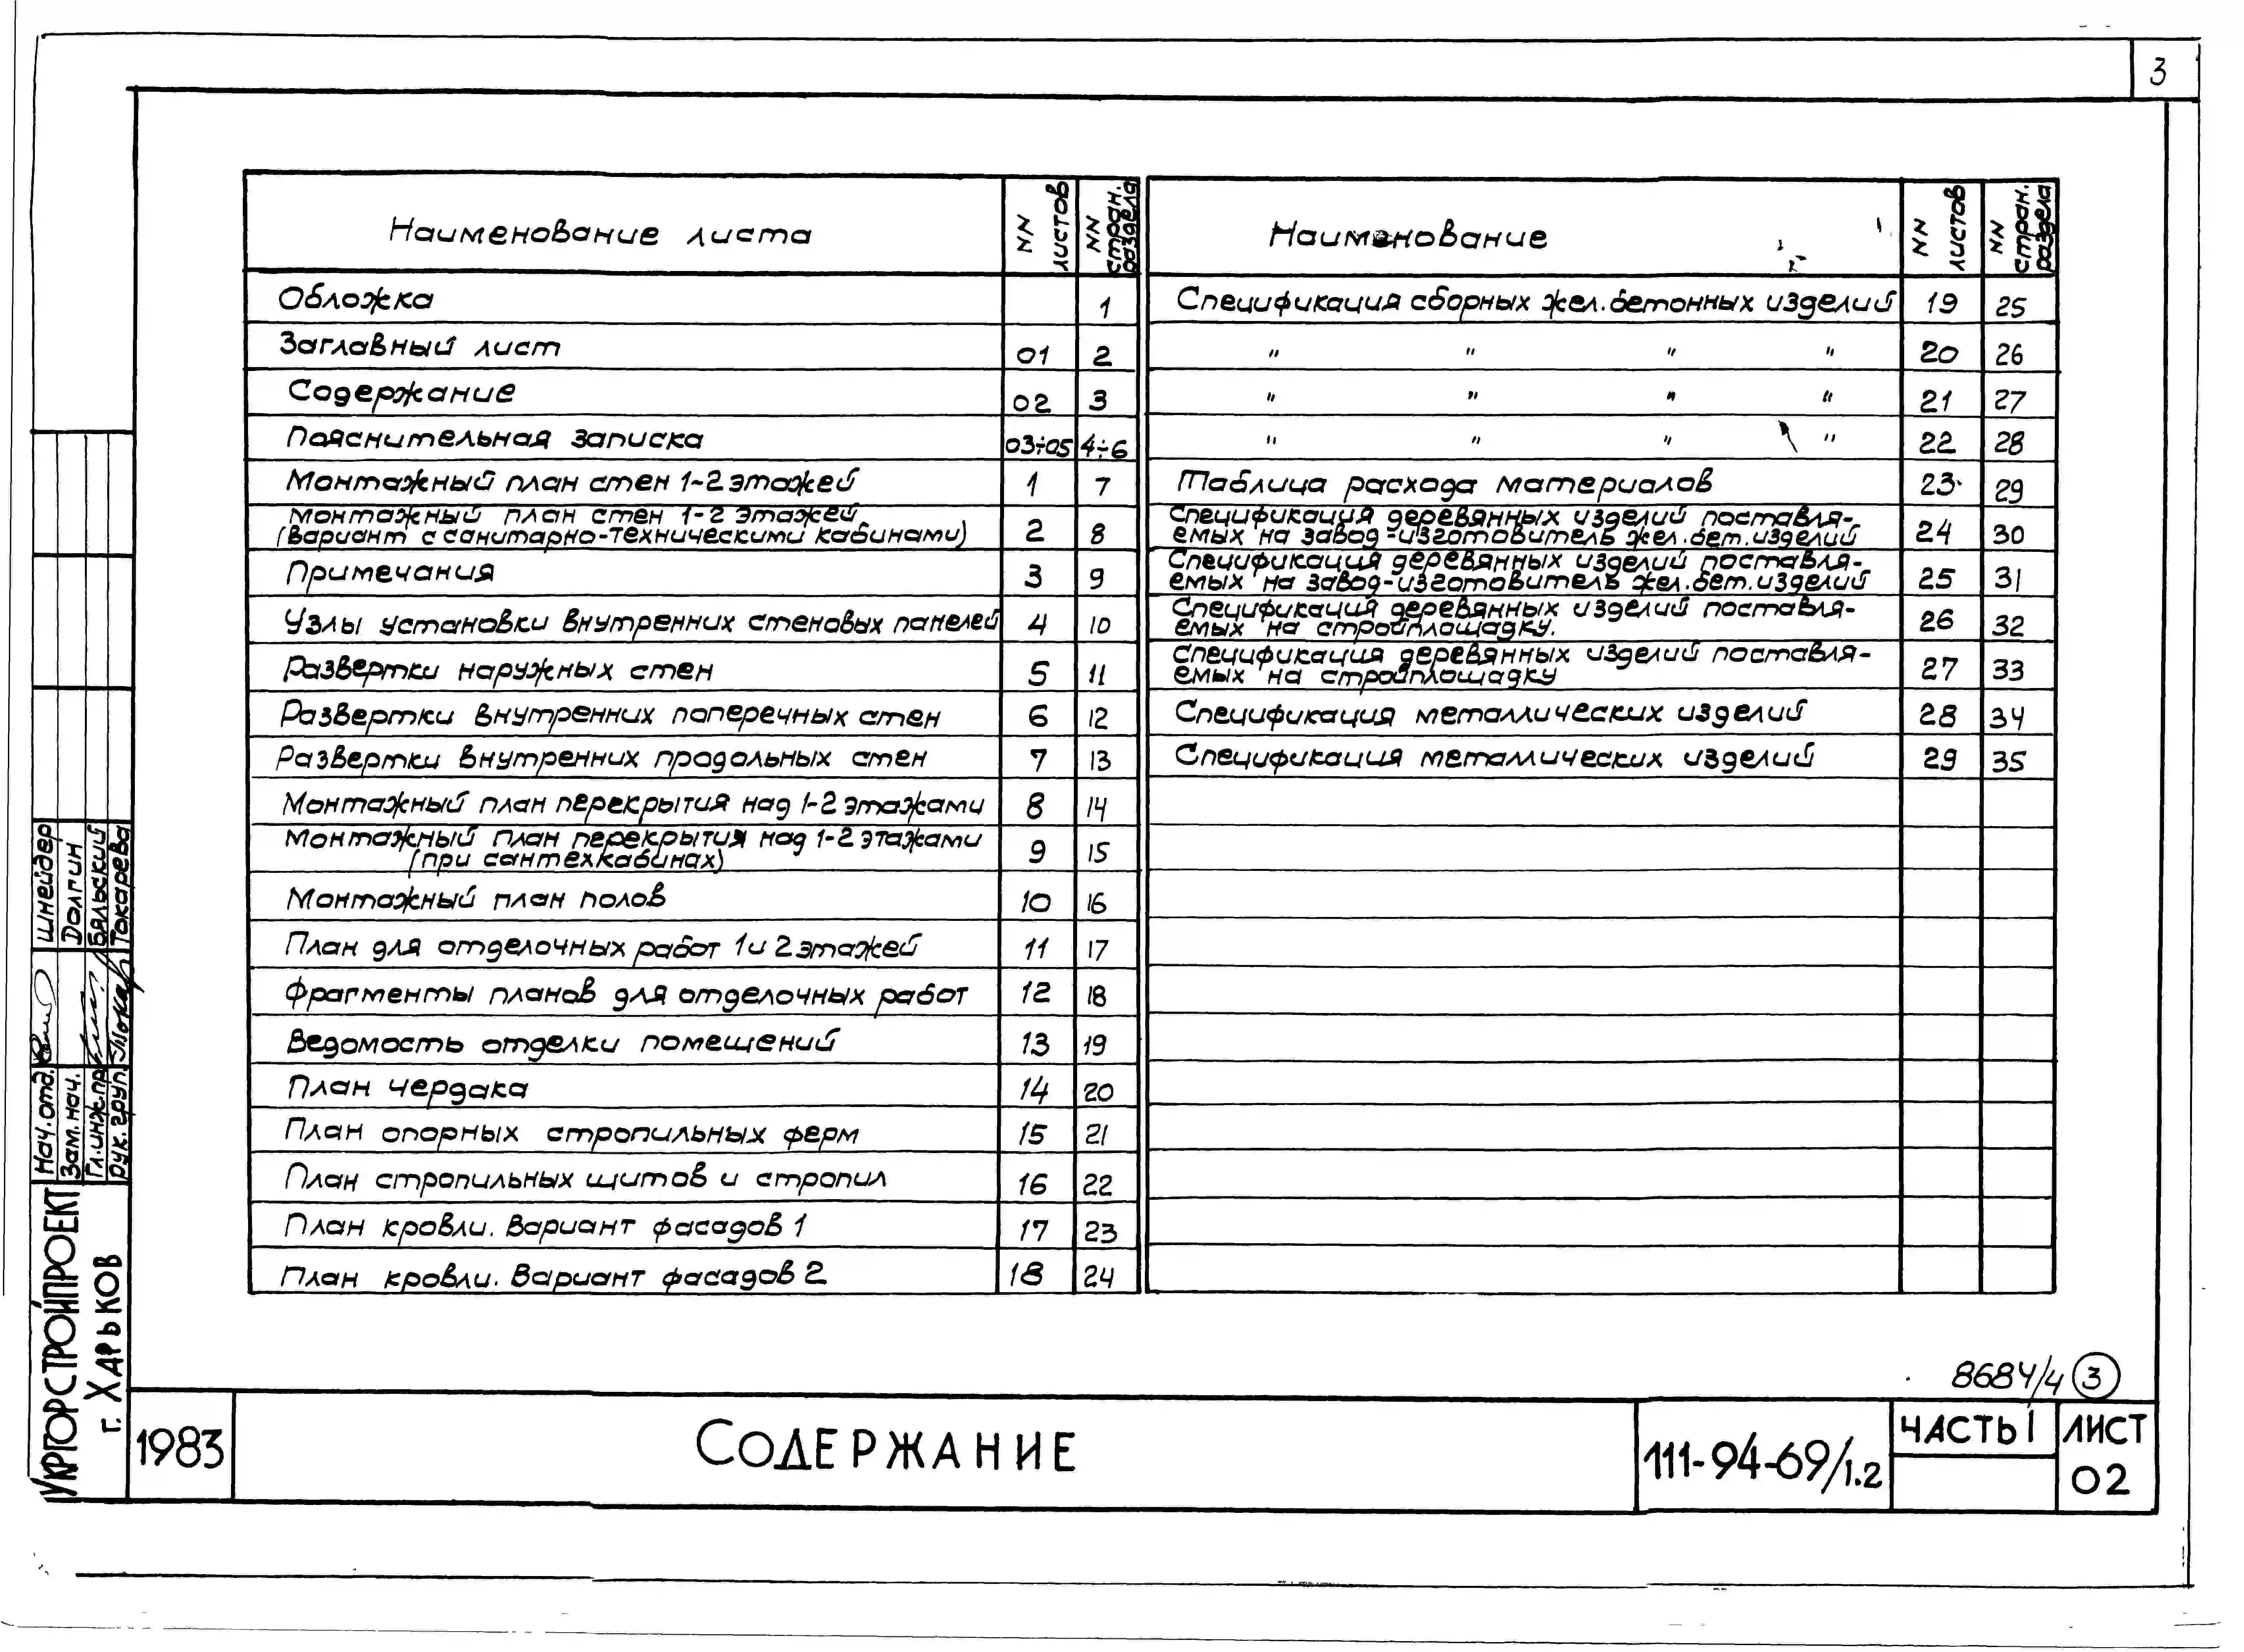 3
Наименование листа | NN листов | NN стран. раздела
Обложка | | 1
Заглавный лист | 01 | 2
Содержание | 02 | 3
Пояснительная записка | 03÷05 | 4÷6
Монтажный план стен 1-2 этажей | 1 | 7
Монтажный план стен 1-2 этажей
(вариант с санитарно-техническими кабинами) | 2 | 8
Примечания | 3 | 9
Узлы установки внутренних стеновых панелей | 4 | 10
Развертки наружных стен | 5 | 11
Развертки внутренних поперечных стен | 6 | 12
Развертки внутренних продольных стен | 7 | 13
Монтажный план перекрытия над 1-2 этажами | 8 | 14
Монтажный план перекрытия над 1-2 этажами
(при сантехкабинах) | 9 | 15
Монтажный план полов | 10 | 16
План для отделочных работ 1 и 2 этажей | 11 | 17
Фрагменты планов для отделочных работ | 12 | 18
Ведомость отделки помещений | 13 | 19
План чердака | 14 | 20
План опорных стропильных ферм | 15 | 21
План стропильных щитов и стропил | 16 | 22
План кровли. Вариант фасадов 1 | 17 | 23
План кровли. Вариант фасадов 2 | 18 | 24
Наименование | NN листов | NN стран. раздела
Спецификация сборных жел.бетонных изделий | 19 | 25
" " " " | 20 | 26
" " " " | 21 | 27
" " " " | 22 | 28
Таблица расхода материалов | 23 | 29
Спецификация деревянных изделий поставля-
емых на завод-изготовитель жел.бет.изделий | 24 | 30
Спецификация деревянных изделий поставля-
емых на завод-изготовитель жел.бет.изделий | 25 | 31
Спецификация деревянных изделий поставля-
емых на стройплощадку. | 26 | 32
Спецификация деревянных изделий поставля-
емых на стройплощадку | 27 | 33
Спецификация металлических изделий | 28 | 34
Спецификация металлических изделий | 29 | 35
Нач.отд. Шнейдер
Зам.нач. Долгин
Гл.инж.пр. Бяльский
Рук.груп. Токарева
Укргорстройпроект
г. Харьков
8684/4 3
1983
Содержание
111-94-69/1.2
Часть 1
Лист
02